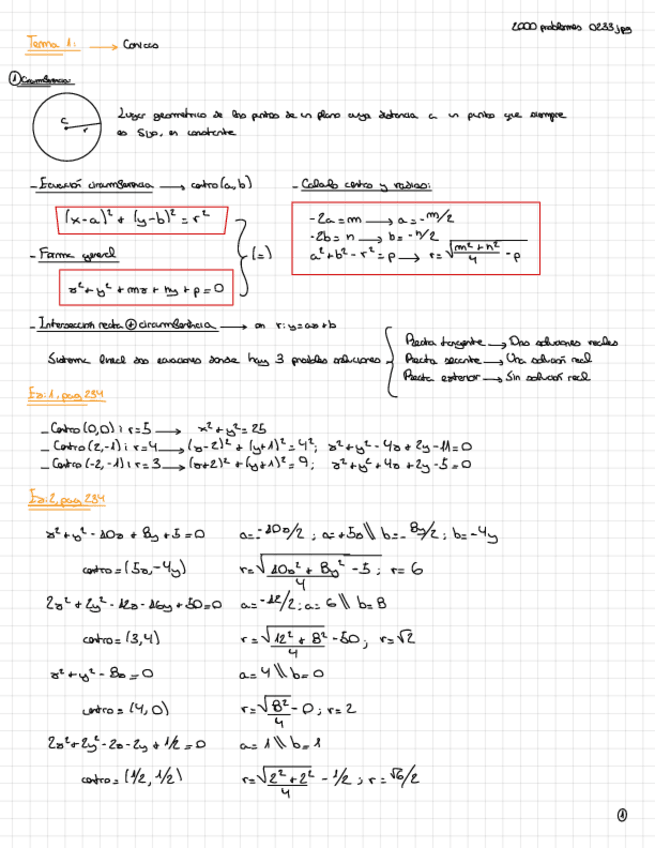 2000 problemas 0233.jpg
Tema 1: → Conicas
① Circumferencia:
C
r
Lugar geometrico de los puntos de un plano cuya distancia a un punto que siempre
es fijo, es constante
- Ecuación circumferencia → centro (a,b)
(x-a)² + (y-b)² = r²
- Forma general
x² + y² + mx + ny + p = 0
(=)
- Calculo centro y radios:
-2a = m → a = -m/2
-2b = n → b = -n/2
a² + b² - r² = p → r = √(m² + n²)/4 - p
- Interseccion recta ⊕ circumferencia → on r: y = ax + b
Sistema lineal dos ecuaciones donde hay 3 posibles soluciones
Recta tangente → Dos soluciones reales
Recta secante → Una solución real
Recta exterior → Sin solución real
Ex: 1, pag 234
- Centro (0,0) i r = 5 → x² + y² = 25
- Centro (2,-1) i r = 4 → (x-2)² + (y+1)² = 4²; x² + y² - 4x + 2y - 11 = 0
- Centro (-2,-1) i r = 3 → (x+2)² + (y+1)² = 9; x² + y² + 4x + 2y - 5 = 0
Ex: 2, pag 234
x² + y² - 10x + 8y + 5 = 0 a = -10x/2; a = +5x \\ b = -8y/2; b = -4y
centro = (5x, -4y) r = √(10x² + 8y²)/4 - 5; r = 6
2x² + 2y² - 12x - 16y + 50 = 0 a = -12/2; a = 6 \\ b = 8
centro = (3,4) r = √(12² + 8²)/4 - 50; r = √2
x² + y² - 8x = 0 a = 4 \\ b = 0
centro = (4,0) r = √8²/4 - 0; r = 2
2x² + 2y² - 2x - 2y + 1/2 = 0 a = 1 \\ b = 1
centro = (1/2, 1/2) r = √(2² + 2²)/4 - 1/2; r = √6/2
①